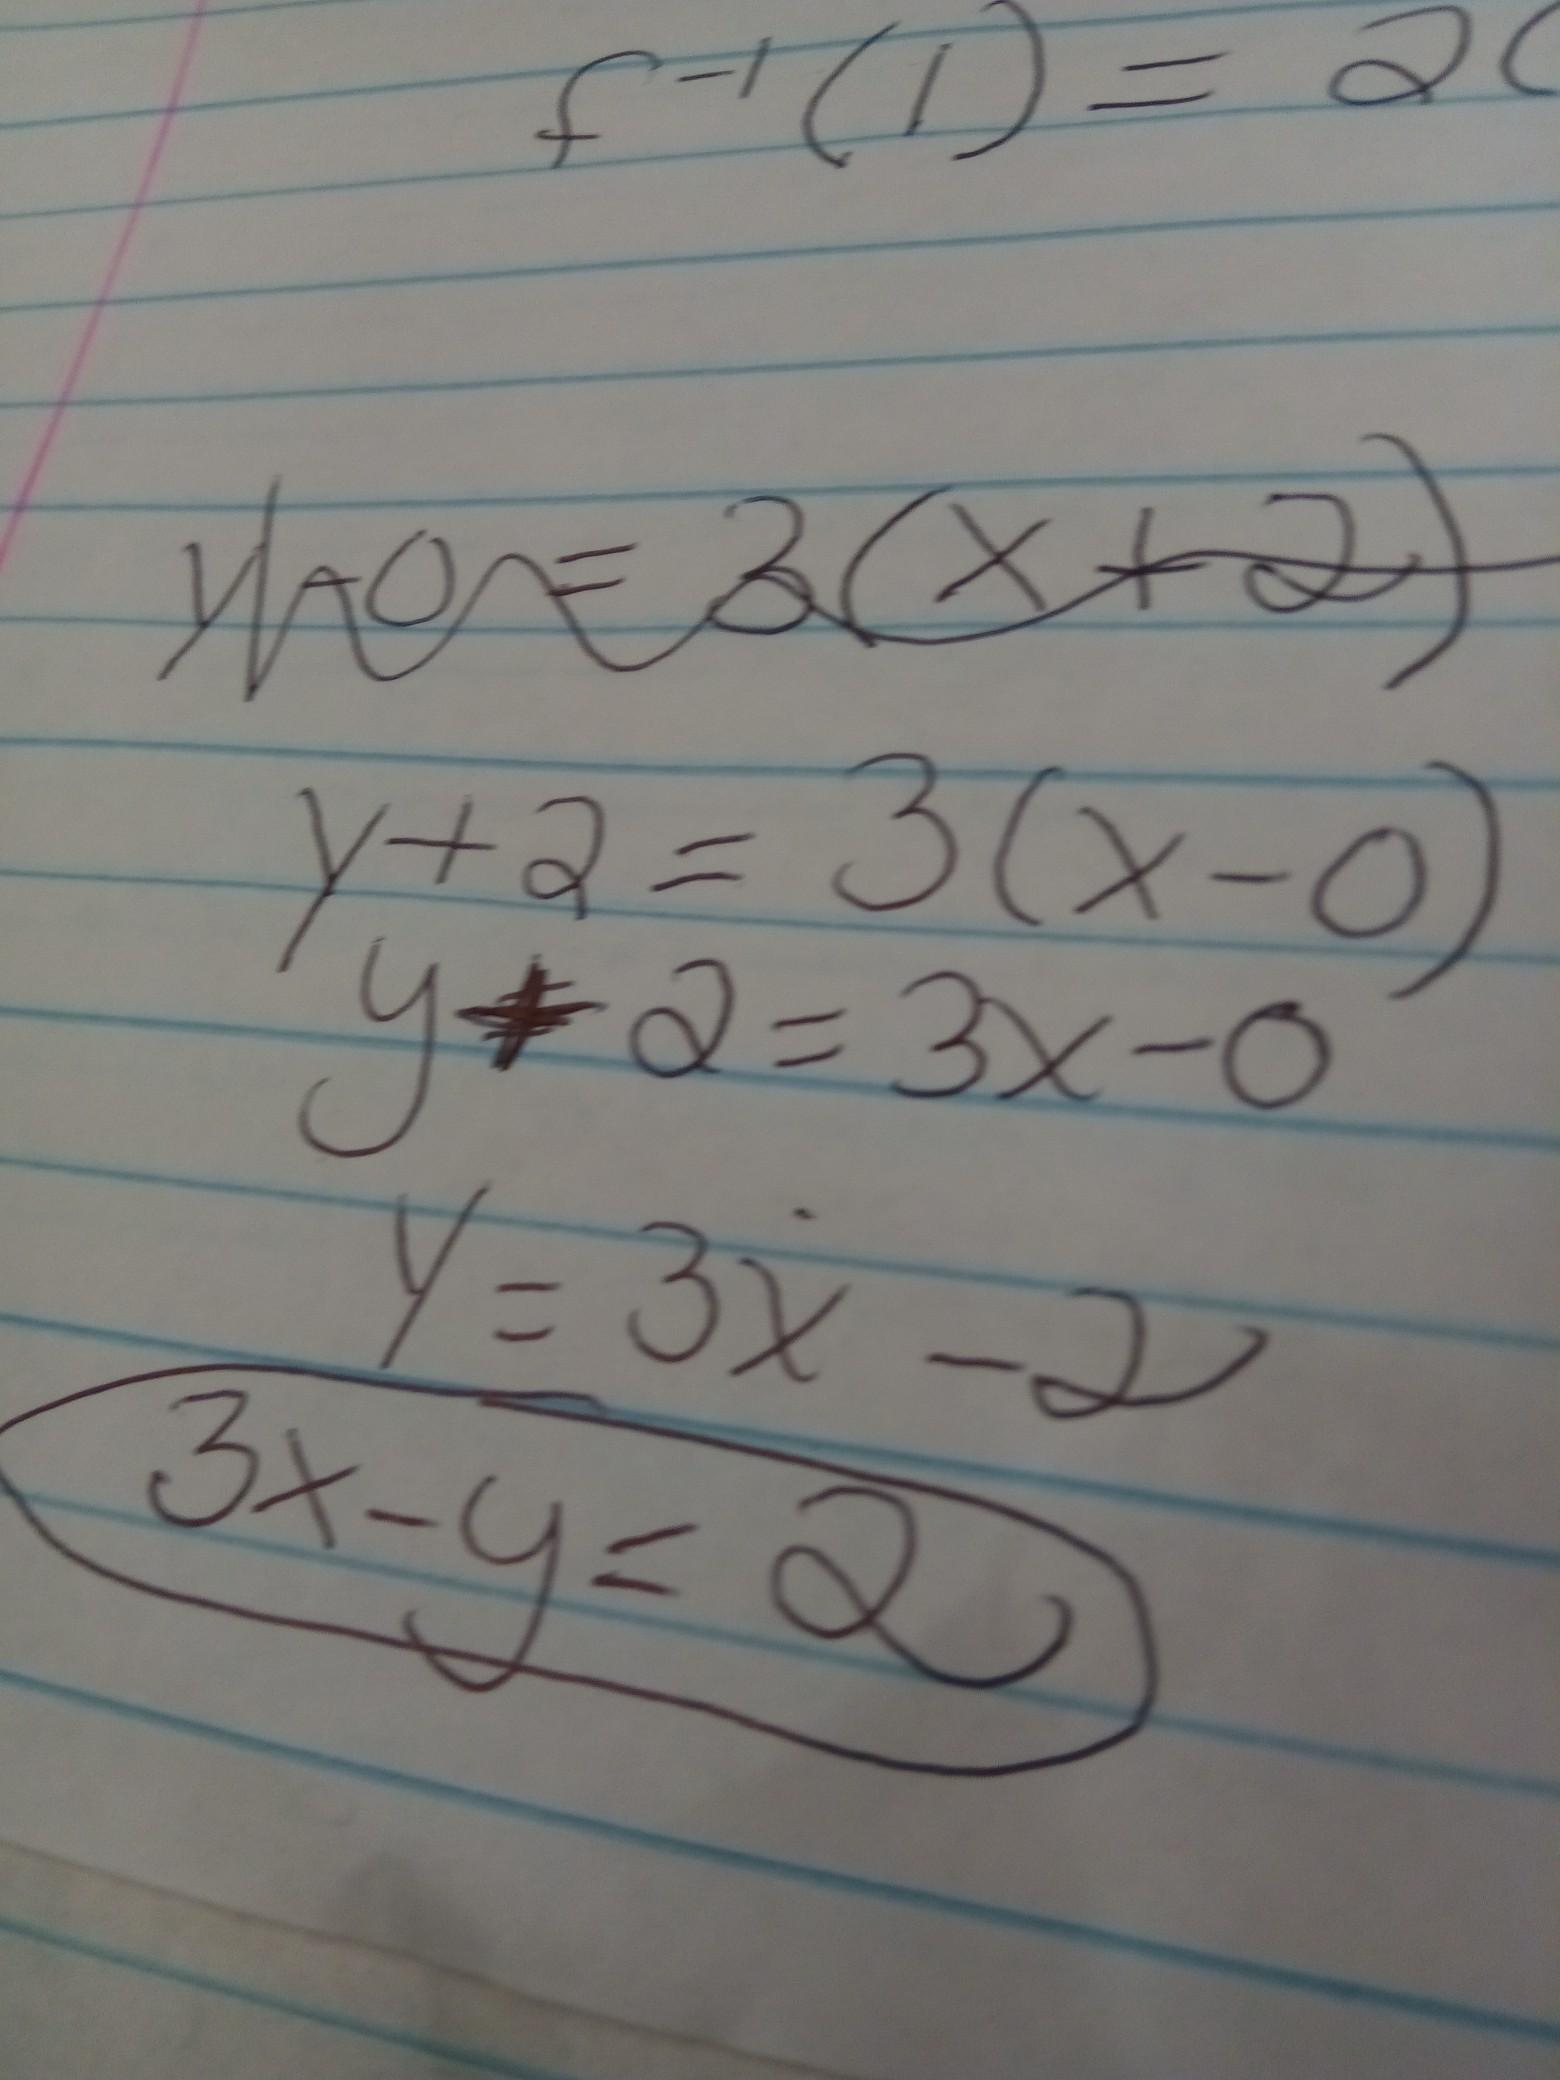 f⁻¹(1) = 2(
y - 0 = 3(x + 2)
y + 2 = 3(x - 0)
y + 2 = 3x - 0
y = 3x - 2
3x - y = 2